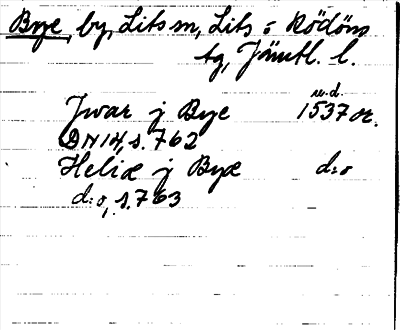 Bye, by, Lits sn, Lits o Rödöns
tg, Jämtl. l.
u.d.
Jwar j Bye 1537 or.
DN 14, s. 762
Heliæ j Byæ d:o
d:o, s. 763